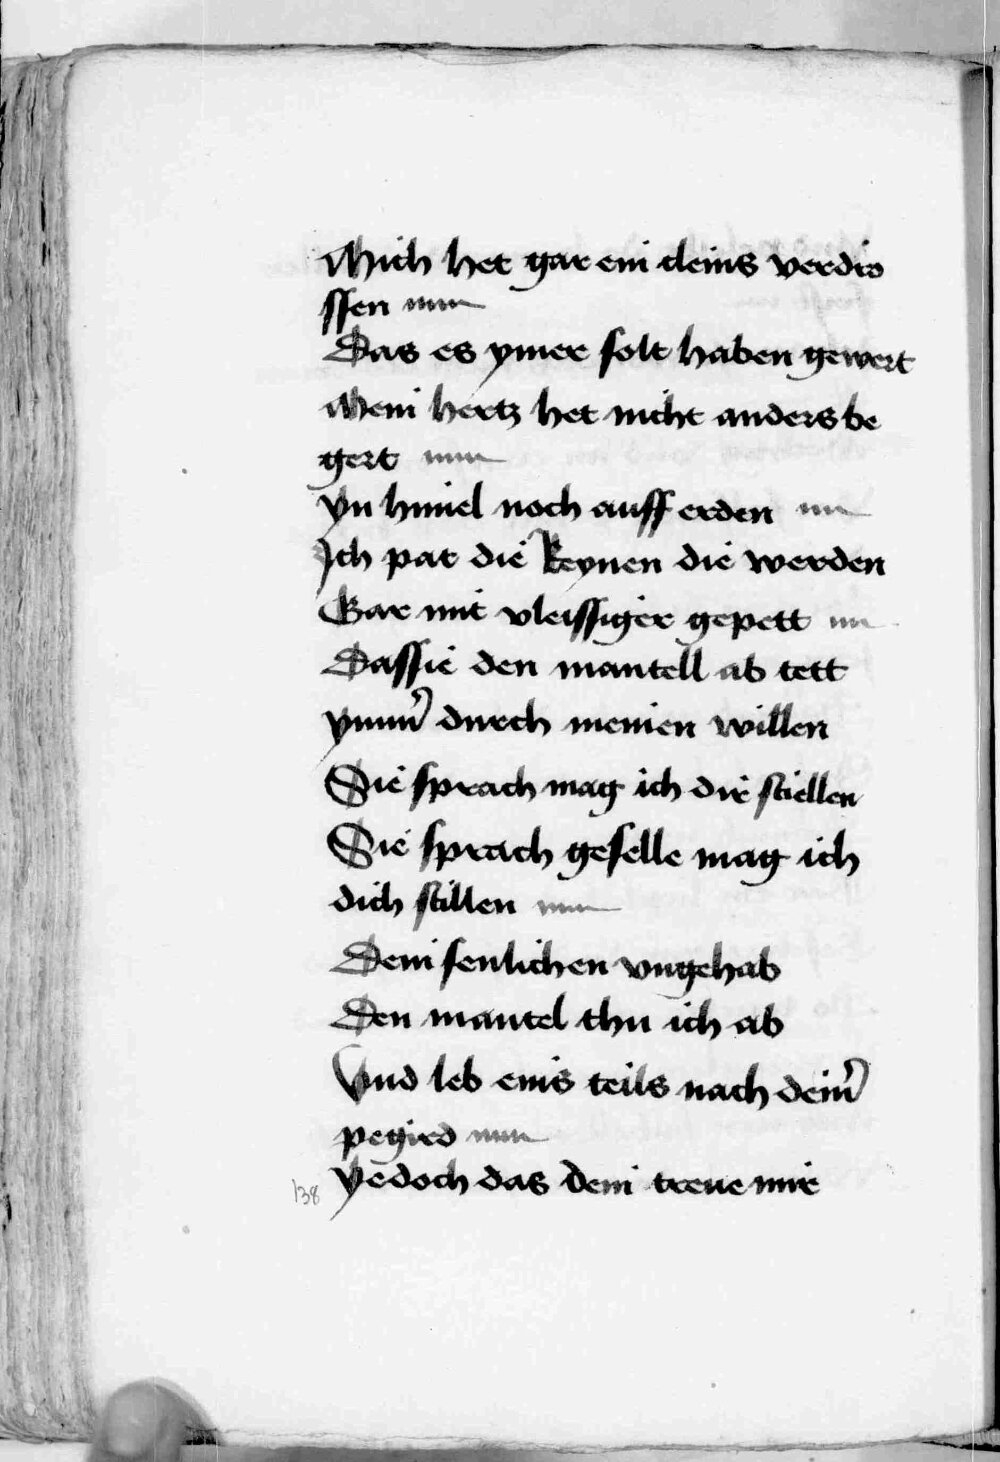 Mich het gar ein cleins verdro
ssen
Das es ymer solt haben gewert
Mein hertz het nicht anders be
gert
Yn himel noch auff erden
Ich pat die Reynen die werden
Gar mit vleissiger gepett
Dassie den mantell ab tett
ymm̃ durch meinen willen
Sie sprach mag ich dir stiellen
Sie sprach geselle mag ich
dich stillen
Dein senlichen vngehab
Den mantel thu ich ab
Vnd leb eins teils nach deim̃
pegird
Yedoch das dein treue mir
138